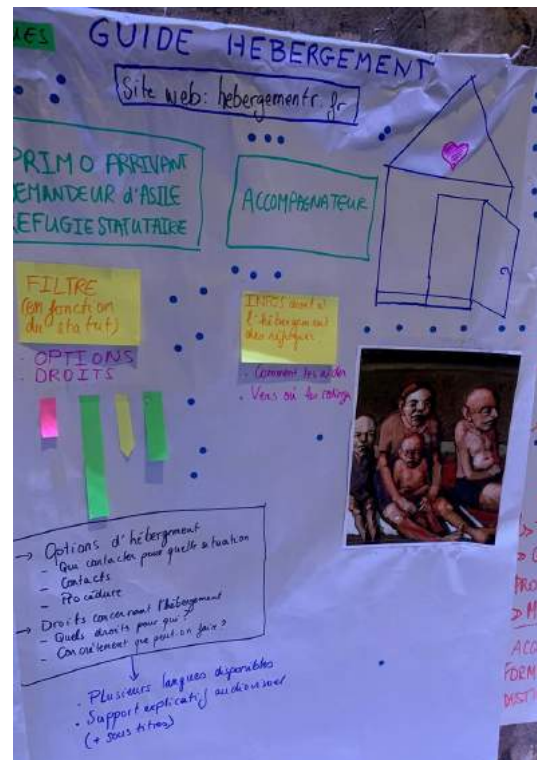 GUIDE HEBERGEMENT
Site web: hebergementr.fr
PRIMO ARRIVANT
DEMANDEUR d'ASILE
REFUGIE STATUTAIRE
ACCOMPAGNATEUR
FILTRE
(en fonction
du statut)
. OPTIONS
. DROITS
INFOS
l'hébergement
des réfugiés
. Comment les aider
. Vers où les
→ Options d'hébergement
- Qui contacter pour quelle situation
- Contacts
- Procédure
→ Droits concernant l'hébergement
- Quels droits pour qui ?
- Concrètement que peut-on faire ?
. Plusieurs langues disponibles
. Support explicatif audiovisuel
(+ sous titres)